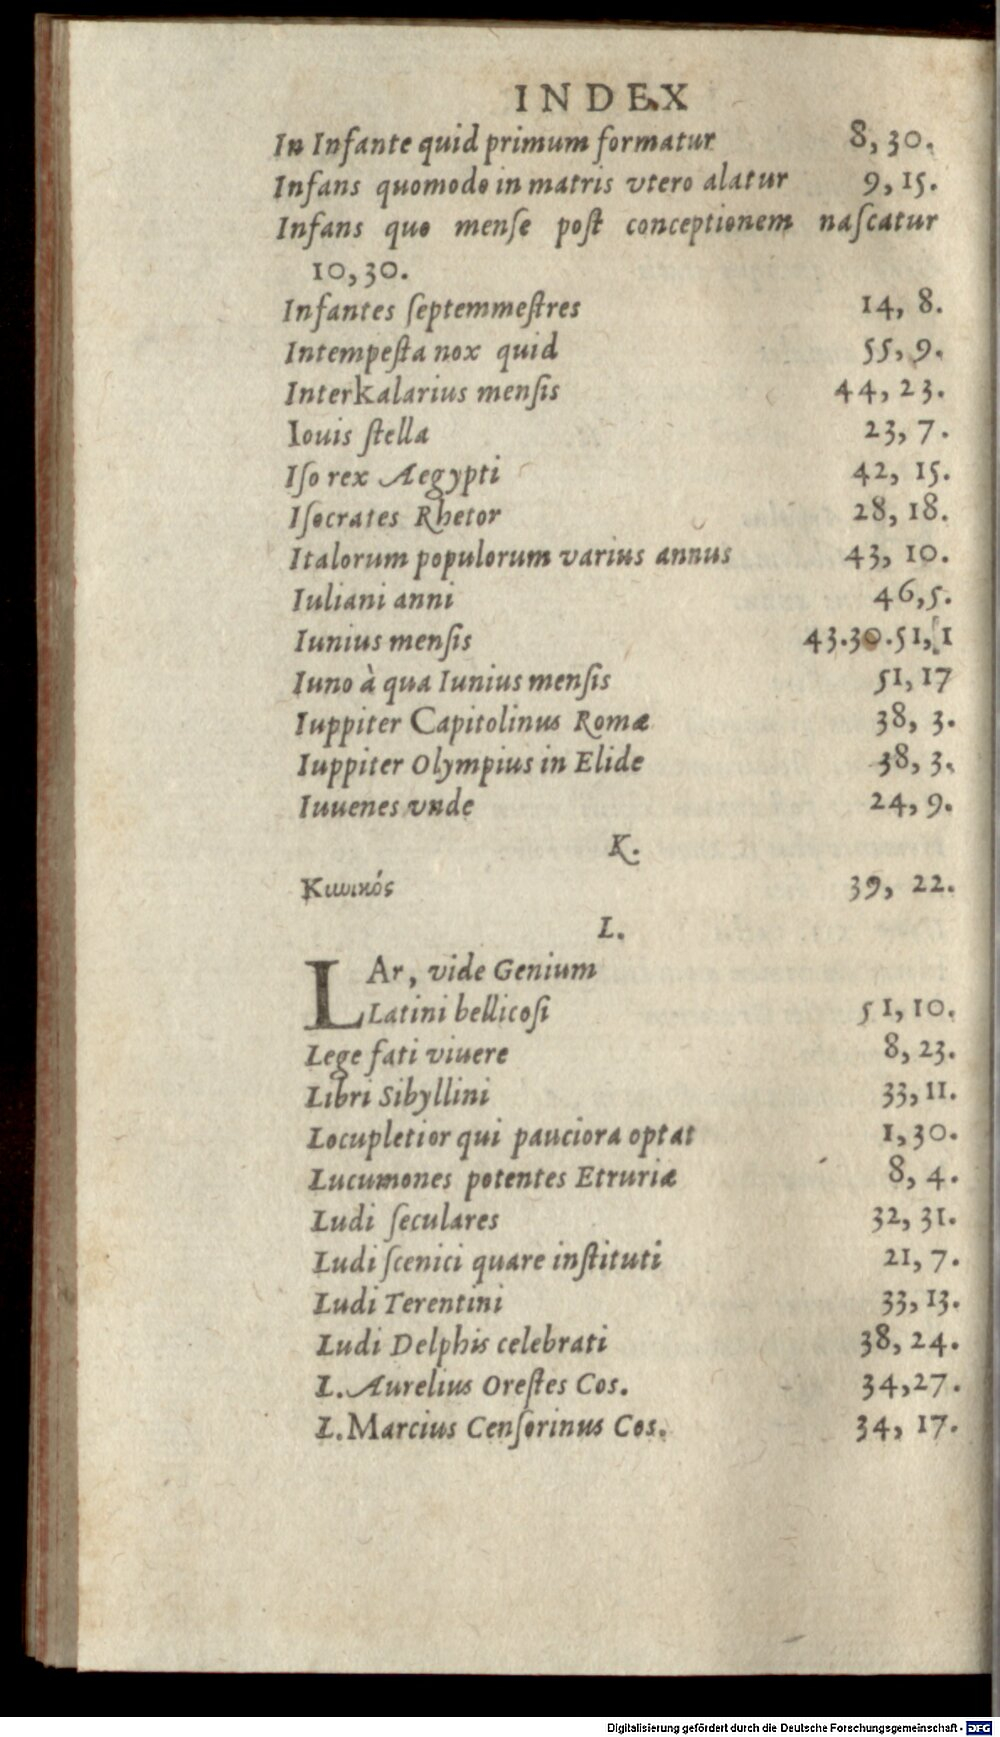 INDEX
In Infante quid primum formatur 8, 30.
Infans quomodo in matris vtero alatur 9, 15.
Infans quo menſe poſt conceptionem naſcatur
10, 30.
Infantes ſeptemmeſtres 14, 8.
Intempeſta nox quid 55, 9.
Interkalarius menſis 44, 23.
Iouis ſtella 23, 7.
Iſo rex Aegypti 42, 15.
Iſocrates Rhetor 28, 18.
Italorum populorum varius annus 43, 10.
Iuliani anni 46, 5.
Iunius menſis 43.30.51, 1
Iuno à qua Iunius menſis 51, 17
Iuppiter Capitolinus Romæ 38, 3.
Iuppiter Olympius in Elide 38, 3.
Iuuenes vnde 24, 9.
K.
39, 22.
L.
LAr, vide Genium
Latini bellicoſi 51, 10.
Lege fati viuere 8, 23.
Libri Sibyllini 33, 11.
Locupletior qui pauciora optat 1, 30.
Lucumones potentes Etruriæ 8, 4.
Ludi ſeculares 32, 31.
Ludi ſcenici quare inſtituti 21, 7.
Ludi Terentini 33, 13.
Ludi Delphis celebrati 38, 24.
L. Aurelius Oreſtes Cos. 34, 27.
L. Marcius Cenſorinus Cos. 34, 17.
Digitalisierung gefördert durch die Deutsche Forschungsgemeinschaft - DFG